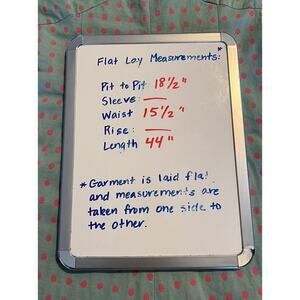 Flat Lay Measurements:*
Pit to Pit 18 1/2"
Sleeve: ___
Waist 15 1/2"
Rise: ___
Length 44"
*Garment is laid flat
and measurements are
taken from one side to
the other.